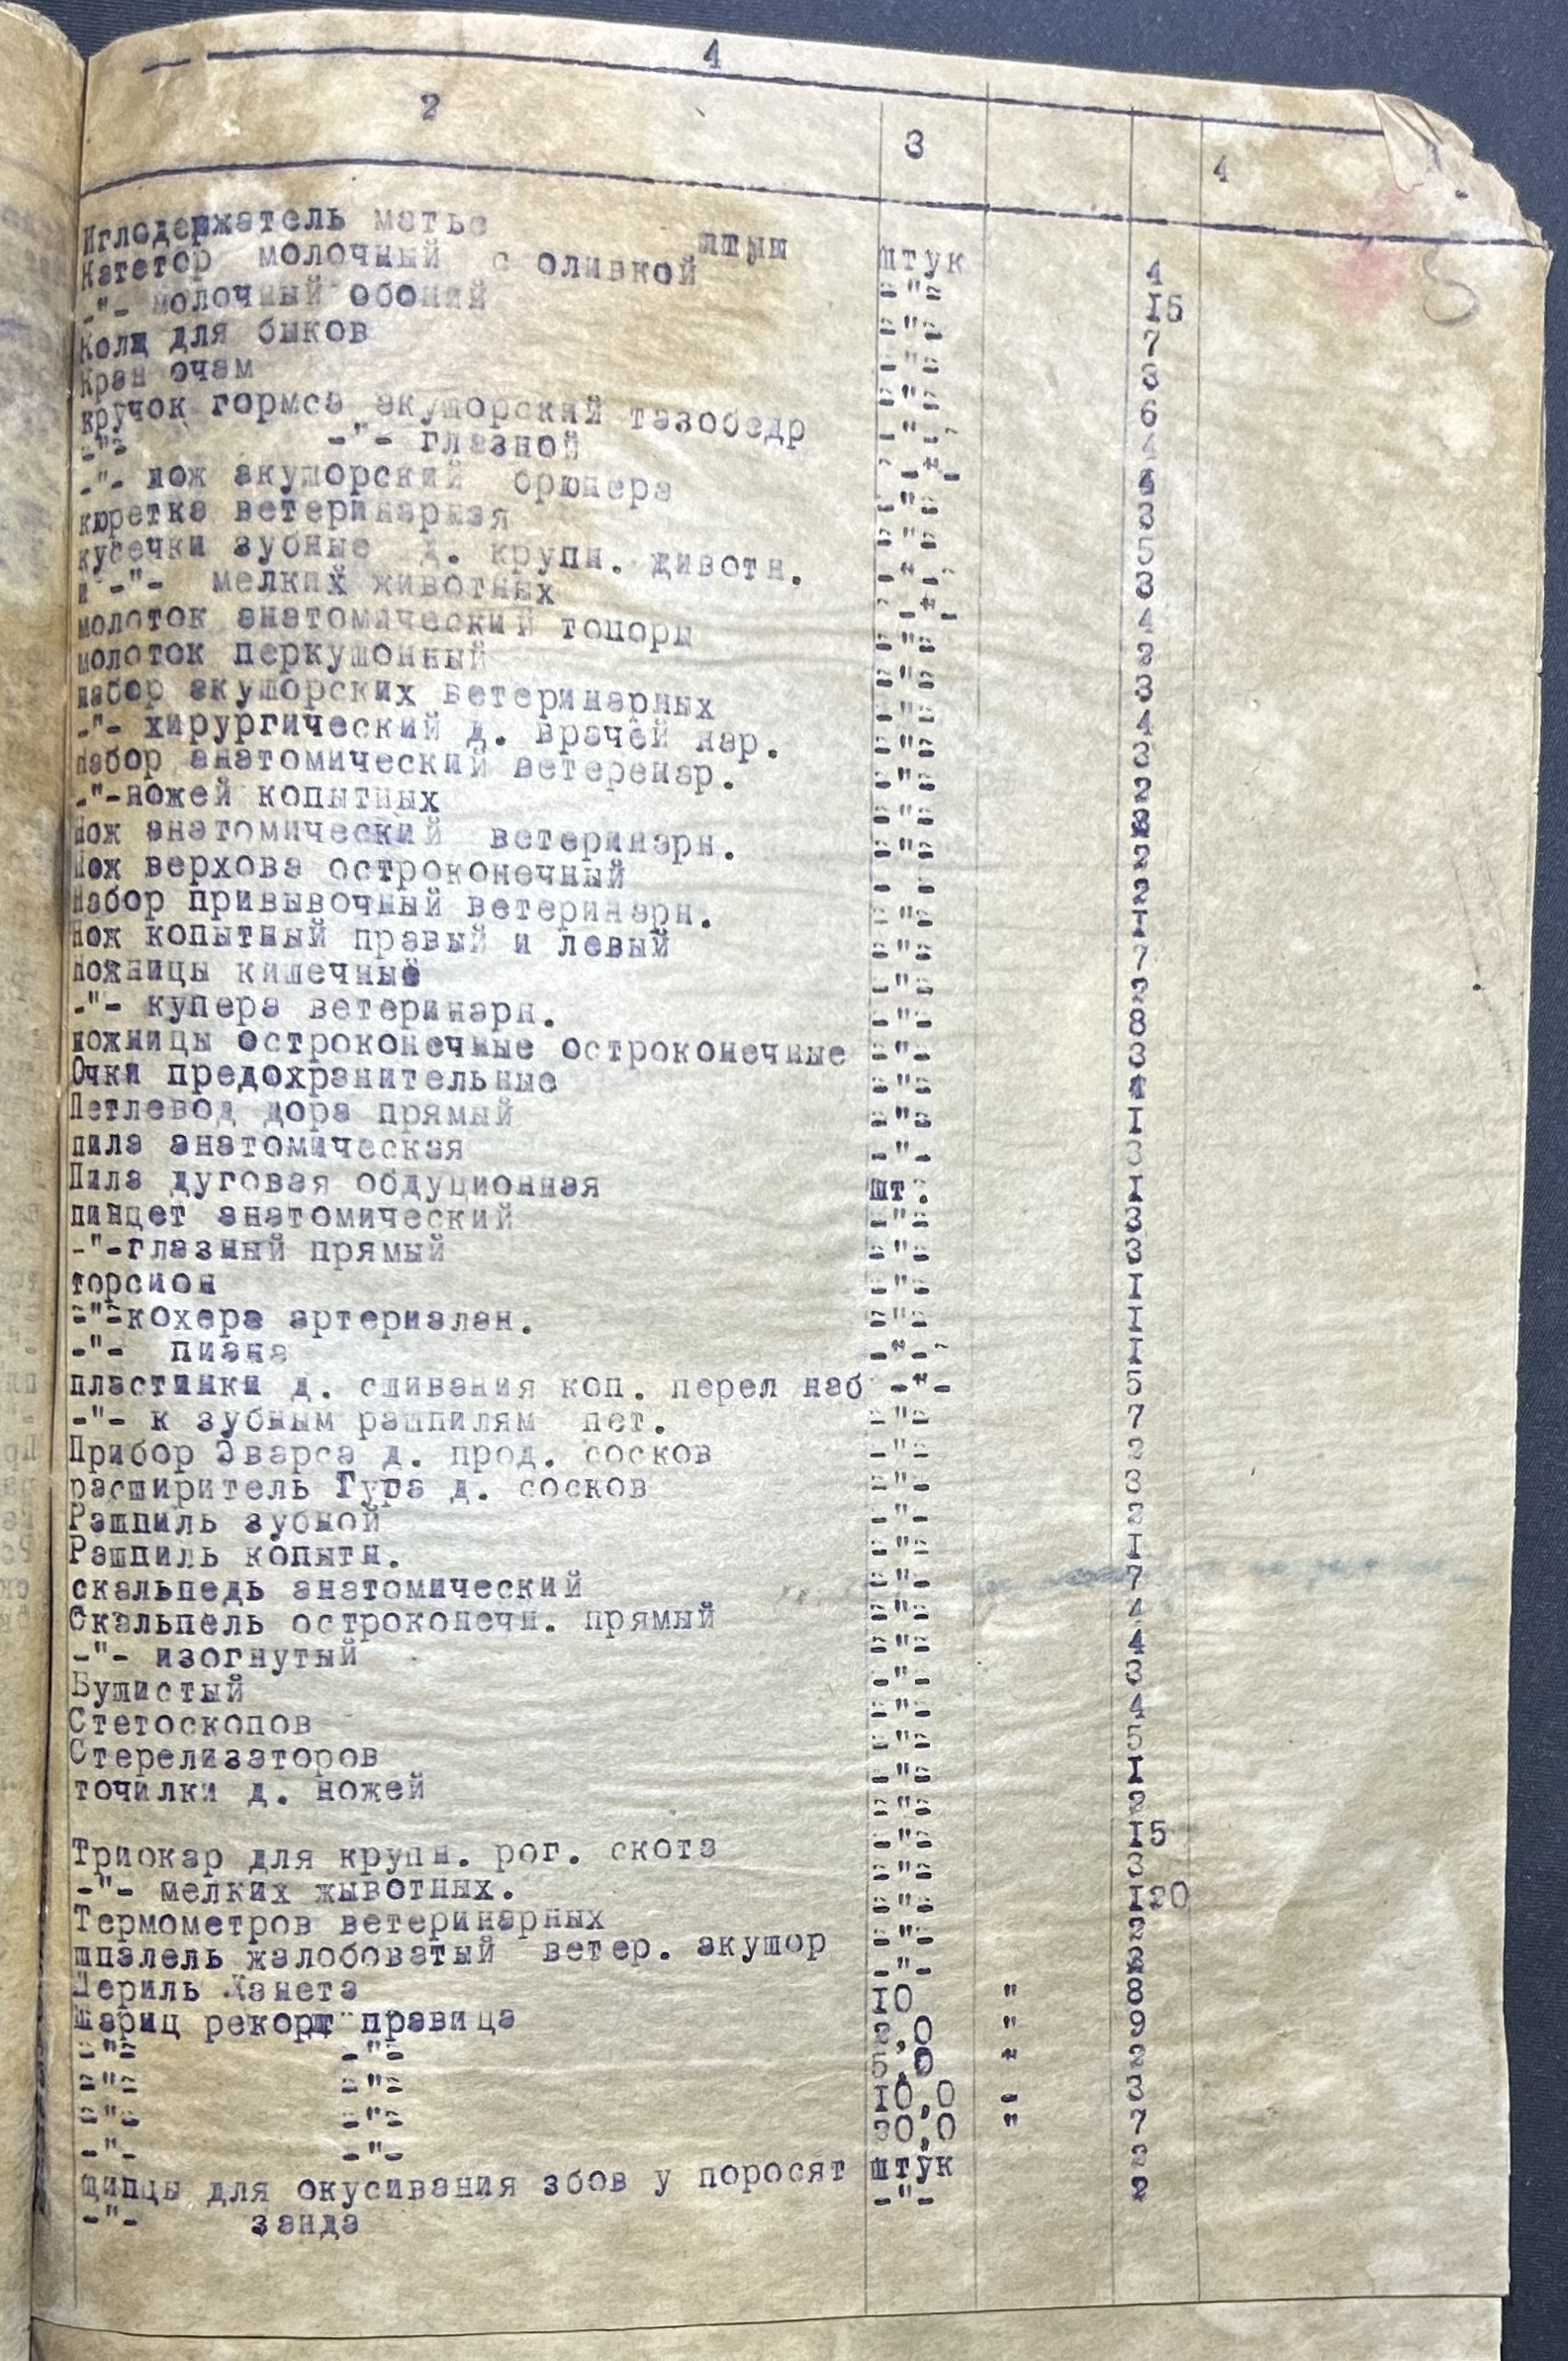 4
2 3 4
Иглодержатель матье штук 4
Катетор молочный с оливкой -"- I5
-"- молочный обоний -"- 7
Колщ для быков -"- 3
Кран очам -"- 6
кручок гормса акушорский тазобедр -"- 4
-"- -"- глазной -"- 4
-"- нож акушорский брюнера -"- 3
кюретка ветеринарная -"- 5
кусечки зубные д. крупн. дивотн. -"- 3
и -"- мелких животных -"- 4
молоток анатомический топоры -"- 2
молоток перкушонный -"- 3
набор акушорских ветеринарных -"- 4
-"- хирургический д. врачей нар. -"- 3
набор анатомический ветеренар. -"- 2
-"-ножей копытных -"- 2
Нож анатомический ветеринарн. -"- 2
Нож верхова остроконечный - - 2
Набор привывочный ветеринарн. -"- I
Нож копытный правый и левый -"- 7
ножницы кишечные -"- 2
-"- купера ветеринарн. -"- 8
ножницы остроконечные остроконечные -"- 3
Очки предохранительные -"- 4
Петлевод дора прямый -"- I
пила анатомическая -"- 3
Пила дуговая обдуционная шт. I
пинцет анатомический -"- 3
-"-глазный прямый -"- 3
торсион -"- I
-"-кохера артериалан. -"- I
-"- пиана -"- I
пластинки д. сшивания коп. перел наб -"- 5
-"- к зубным рашпилям пет. -"- 7
Прибор Эварса д. прод. сосков -"- 2
расширитель Гура д. сосков -"- 3
Рашпиль зубной -"- 2
Рашпиль копытн. -"- I
скальпедь анатомический -"- 7
Скальпель остроконечн. прямый -"- 4
-"- изогнутый -"- 4
Бушистый -"- 3
Стетоскопов -"- 4
Стерелизаторов -"- 5
точилки д. ножей -"- I
-"- 2
Триокар для крупн. рог. скота -"- I5
-"- мелких жывотных. -"- 3
Термометров ветеринарных -"- I20
шпалель жалобоватый ветер. акушор -"- 2
Периль Ханета -"- 2
Шариц рекорт правица I0 " 8
-"- -"- 2,0 " 9
-"- -"- 5,0 " 2
-"- -"- I0,0 - 3
-"- -"- 30,0 " 7
щипцы для окусивания збов у поросят штук 2
-"- занда -"- 2